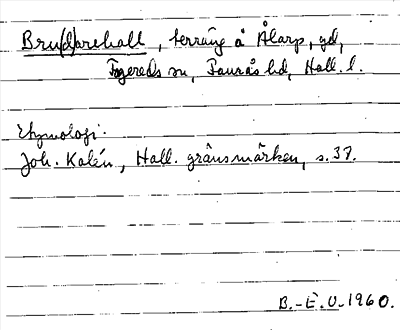 Bru(d)arehall, terräng å Ålarp, gd,
Fagereds sn, Faurås hd, Hall. l.
Etymologi.
Joh. Kalén, Hall. gränsmärken, s. 37.
B.-E. U. 1960.